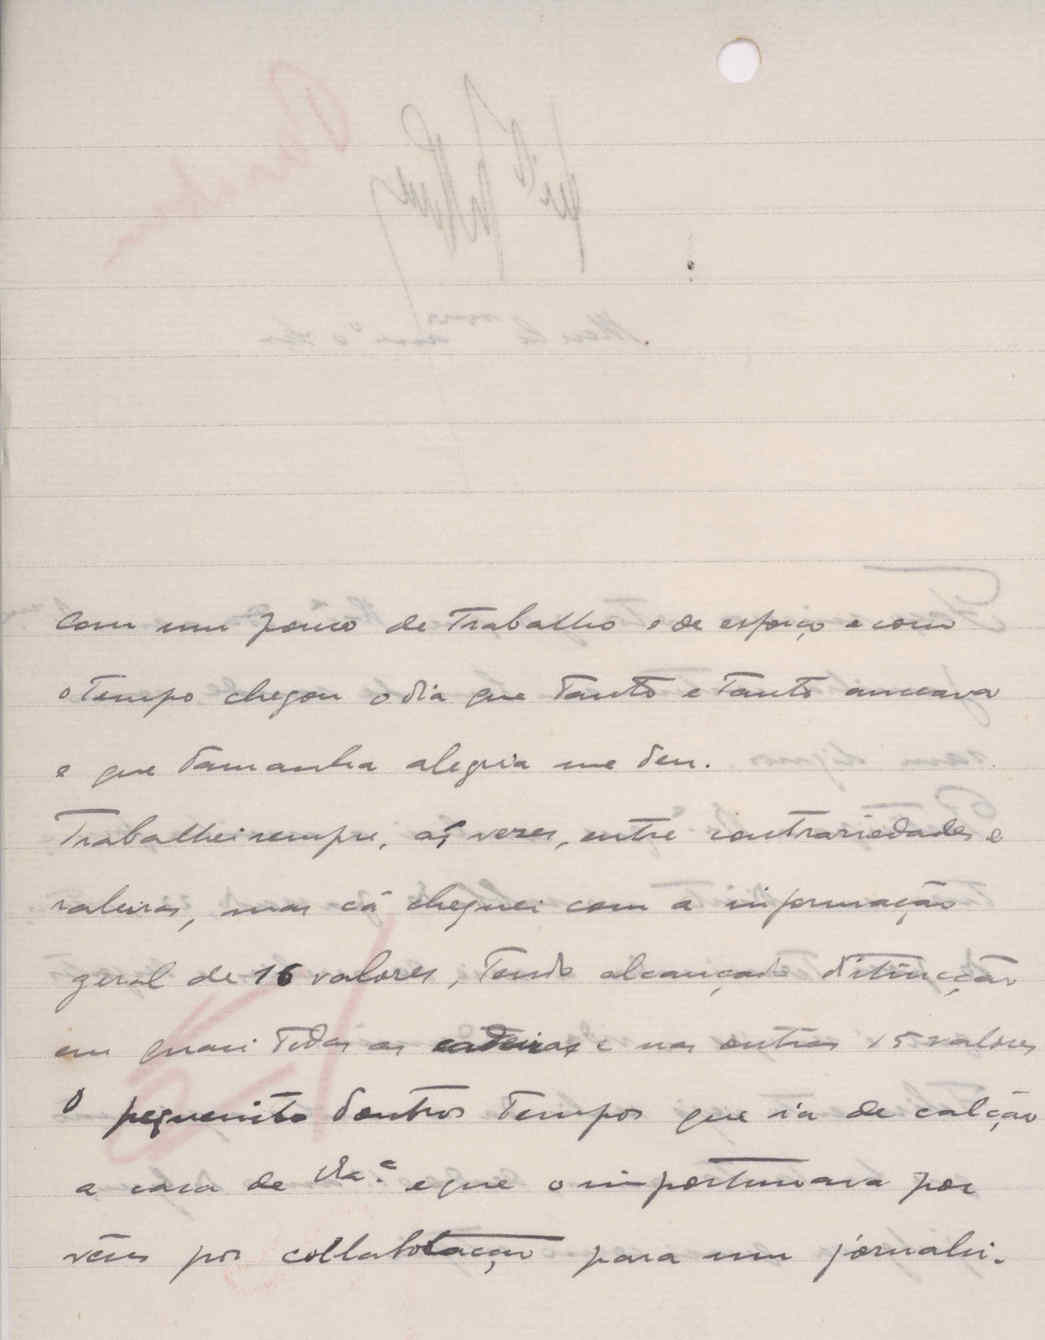 Com um pouco de trabalho e de esforço e com
o tempo chegou o dia que tanto e tanto anceava
e que tamanha alegria me deu.
Trabalhei sempre, ás vezes, entre contrariedades e
, mas cá cheguei com a informação
geral de 16 valores, tendo alcançado distincção
em quasi todas as cadeiras e nas outras 15 valores
O pequenito doutros tempos que ia de calção
a casa de V. Exa.ª e que o importunava por
vêses por collaboração para um jornalsi-